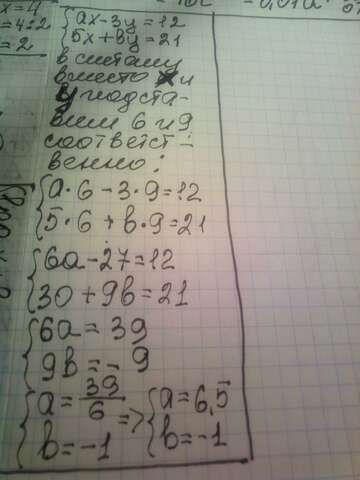 x=4
=4:2
=2
{ax-3y=12
5x+by=21
в систему
вместо x и
y подста-
вим 6 и 9
соответст-
венно:
{a·6-3·9=12
5·6+b·9=21
{6a-27=12
30+9b=21
{6a=39
9b=-9
{a=39/6 => {a=6,5
b=-1 b=-1